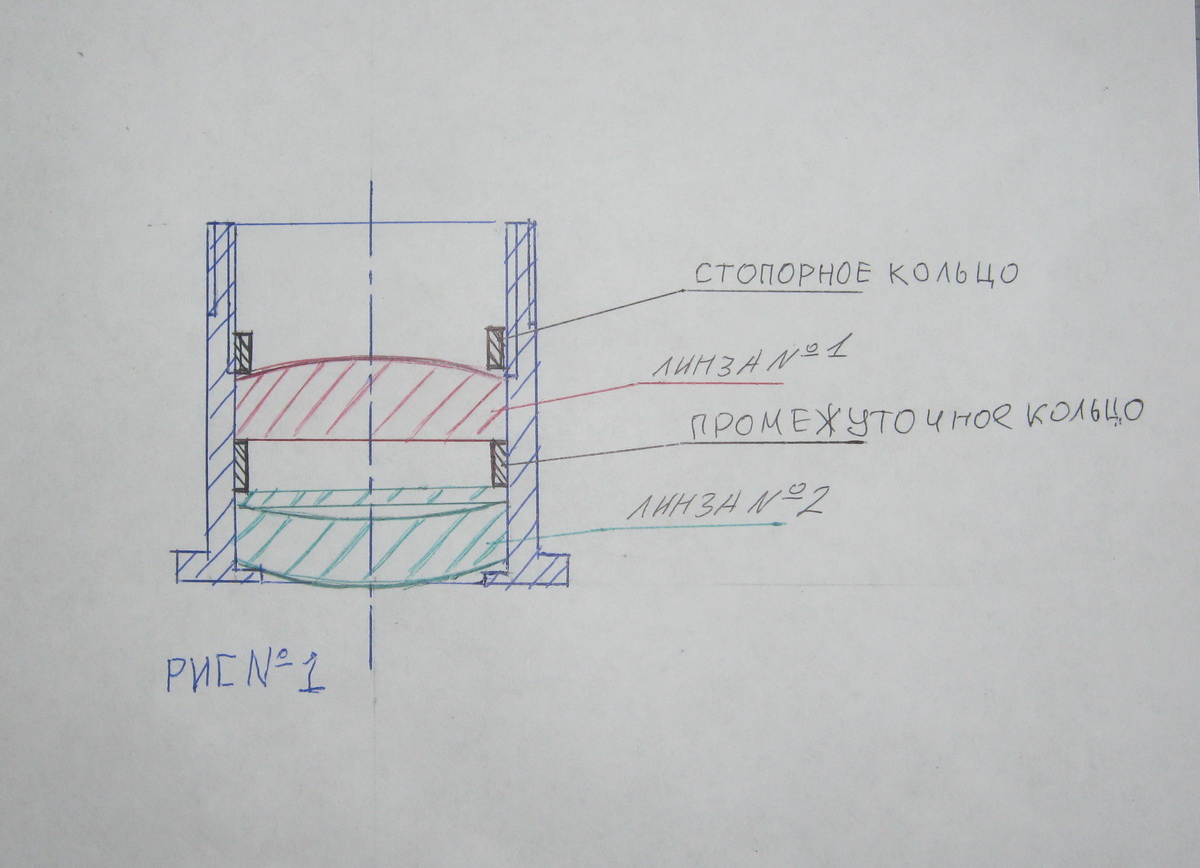 СТОПОРНОЕ КОЛЬЦО
ЛИНЗА №1
ПРОМЕЖУТОЧНОЕ КОЛЬЦО
ЛИНЗА №2
РИС №1